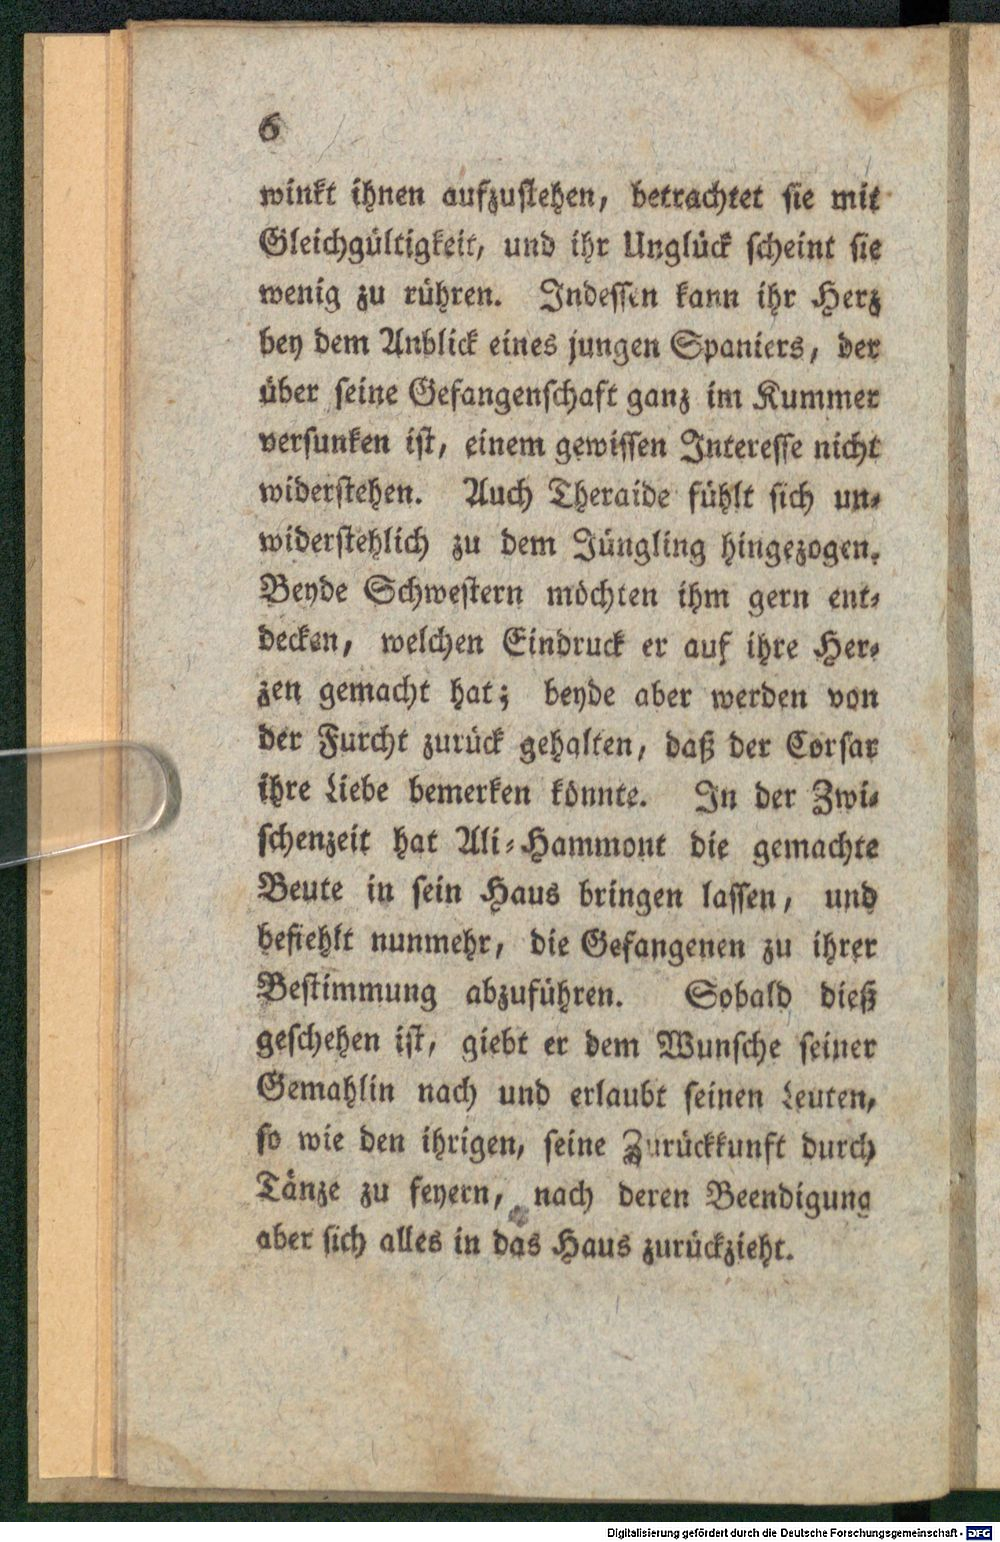 6
winkt ihnen aufzustehen, betrachtet sie mit
Gleichgültigkeit, und ihr Unglück scheint sie
wenig zu rühren. Indessen kann ihr Herz
bey dem Anblick eines jungen Spaniers, der
über seine Gefangenschaft ganz im Kummer
versunken ist, einem gewissen Interesse nicht
widerstehen. Auch Theraide fühlt sich un-
widerstehlich zu dem Jüngling hingezogen.
Beyde Schwestern möchten ihm gern ent-
decken, welchen Eindruck er auf ihre Her-
zen gemacht hat; beyde aber werden von
der Furcht zurück gehalten, daß der Corsar
ihre Liebe bemerken könnte. In der Zwi-
schenzeit hat Ali-Hammont die gemachte
Beute in sein Haus bringen lassen, und
befiehlt nunmehr, die Gefangenen zu ihrer
Bestimmung abzuführen. Sobald dieß
geschehen ist, giebt er dem Wunsche seiner
Gemahlin nach und erlaubt seinen Leuten,
so wie den ihrigen, seine Zurückkunft durch
Tänze zu feyern, nach deren Beendigung
aber sich alles in das Haus zurückzieht.
Digitalisierung gefördert durch die Deutsche Forschungsgemeinschaft - DFG